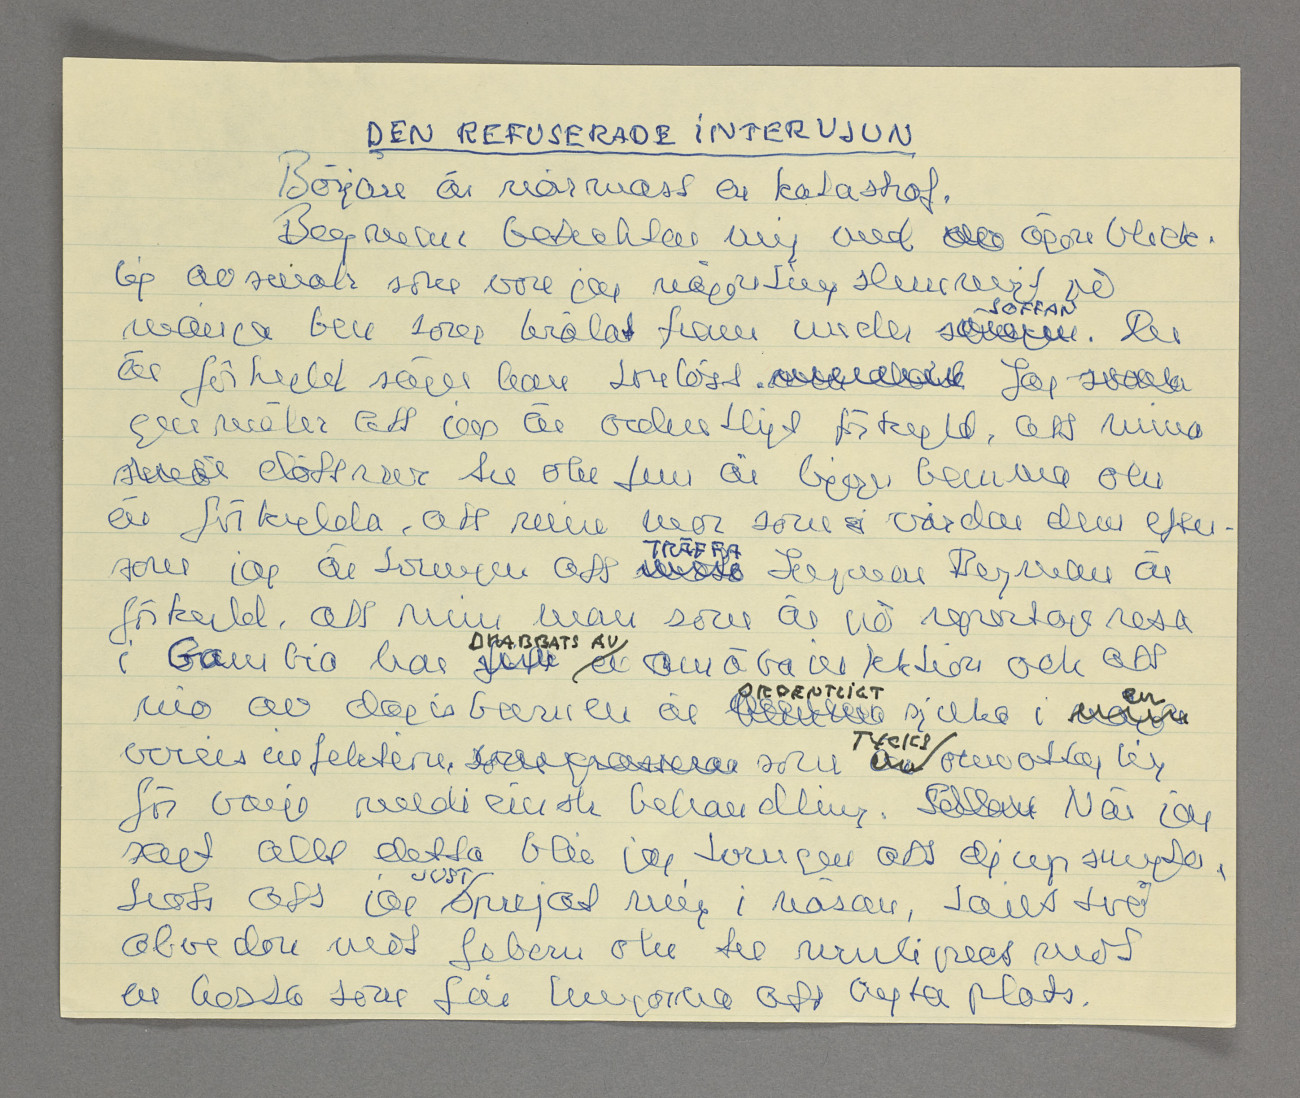 DEN REFUSERADE INTERVJUN
Början är närmast en katastrof.
Bergman betraktar mig med ögonblick-
lig avsmak som vore jag någonting skummigt på
många ben som krälat fram under SOFFAN. Du
är förkyld säger han tonlöst. Jag
genmäler att jag är ordentligt förkyld, att mina
döttrar tre och fem är ligger hemma och
är förkylda, att min mor som vårdar dem efter-
som jag är tvungen att TRÄFFA Ingmar Bergman är
förkyld, att min man som är på reportageresa
i Gambia har DRABBATS AV en amöbainfektion och att
nio av dagisbarnen är ORDENTLIGT sjuka i en
virusinfektion, som TYCKS omottaglig
för varje medicinsk behandling. När jag
sagt allt detta blir jag tvungen att djup snyta,
trots att jag JUST sprejat mig i näsan, tagit två
alvedon mot febern och tre mollipect mot
en hosta som får lungorna att byta plats.